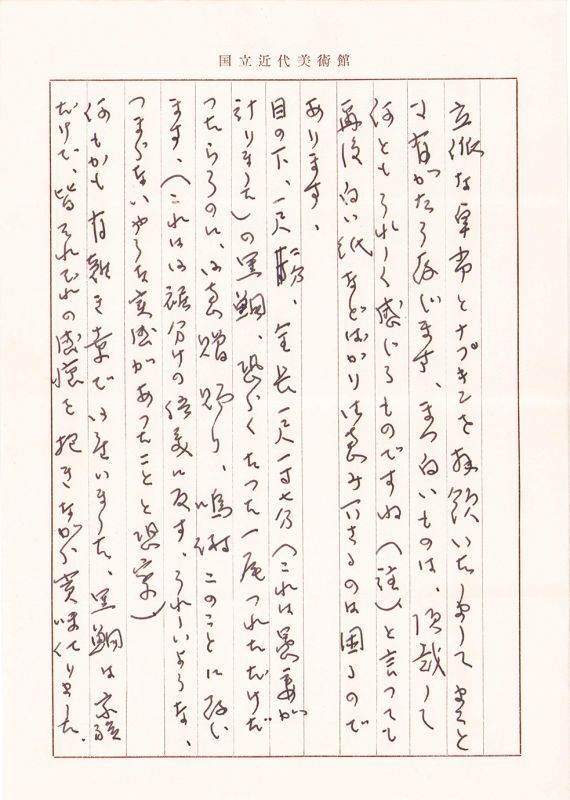 国立近代美術館
立派な卓布とナプキンを拝領いたしまして まこと
に有がたう存じます、まつ白いものは、頂戴して
何ともうれしく感じるものですね(註)と言つてて
再後 白い紙などばかりお恵み下さるのは困るので
あります、
目の下、一尺 二分、全長一尺一寸七分(これは愚妻が
計りました)の黒鯛、恐らくたつた一尾つれただけだ
つたらうのに、御恵贈賜り、嗚謝 このことに存じ
ます、(これは御裾分けの信義に反す、うれしいような、
つまらないやうな実感があつたことと恐察)
何もかも有難き幸でございました、黒鯛は家族
だけで、皆それぞれの感懐を抱きながら賞味仕りました、